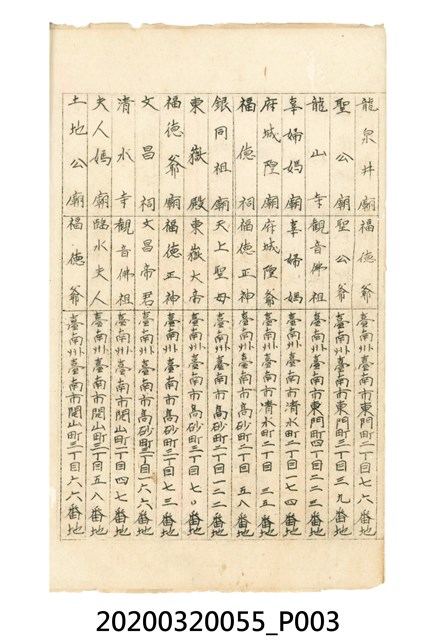 龍泉井廟 福德爺 臺南州臺南市東門町二丁目七六番地
聖公廟 聖公爺 臺南州臺南市東門町三丁目三九番地
龍山寺 觀音佛祖 臺南州臺南市東門町四丁目二三番地
辜婦媽廟 辜婦媽 臺南州臺南市清水町二丁目一七四番地
府城隍廟 府城隍爺 臺南州臺南市清水町一丁目三五番地
福德祠 福德正神 臺南州臺南市高砂町一丁目五八番地
銀同祖廟 天上聖母 臺南州臺南市高砂町一丁目一二二番地
東嶽殿 東嶽大帝 臺南州臺南市高砂町三丁目七〇番地
福德爺廟 福德正神 臺南州臺南市高砂町三丁目七三番地
文昌祠 文昌帝君 臺南州臺南市高砂町三丁目一六六番地
清水寺 觀音佛祖 臺南州臺南市開山町一丁目四七番地
夫人媽廟 臨水夫人 臺南州臺南市開山町二丁目五八番地
土地公廟 福德爺 臺南州臺南市開山町三丁目六六番地
20200320055_P003